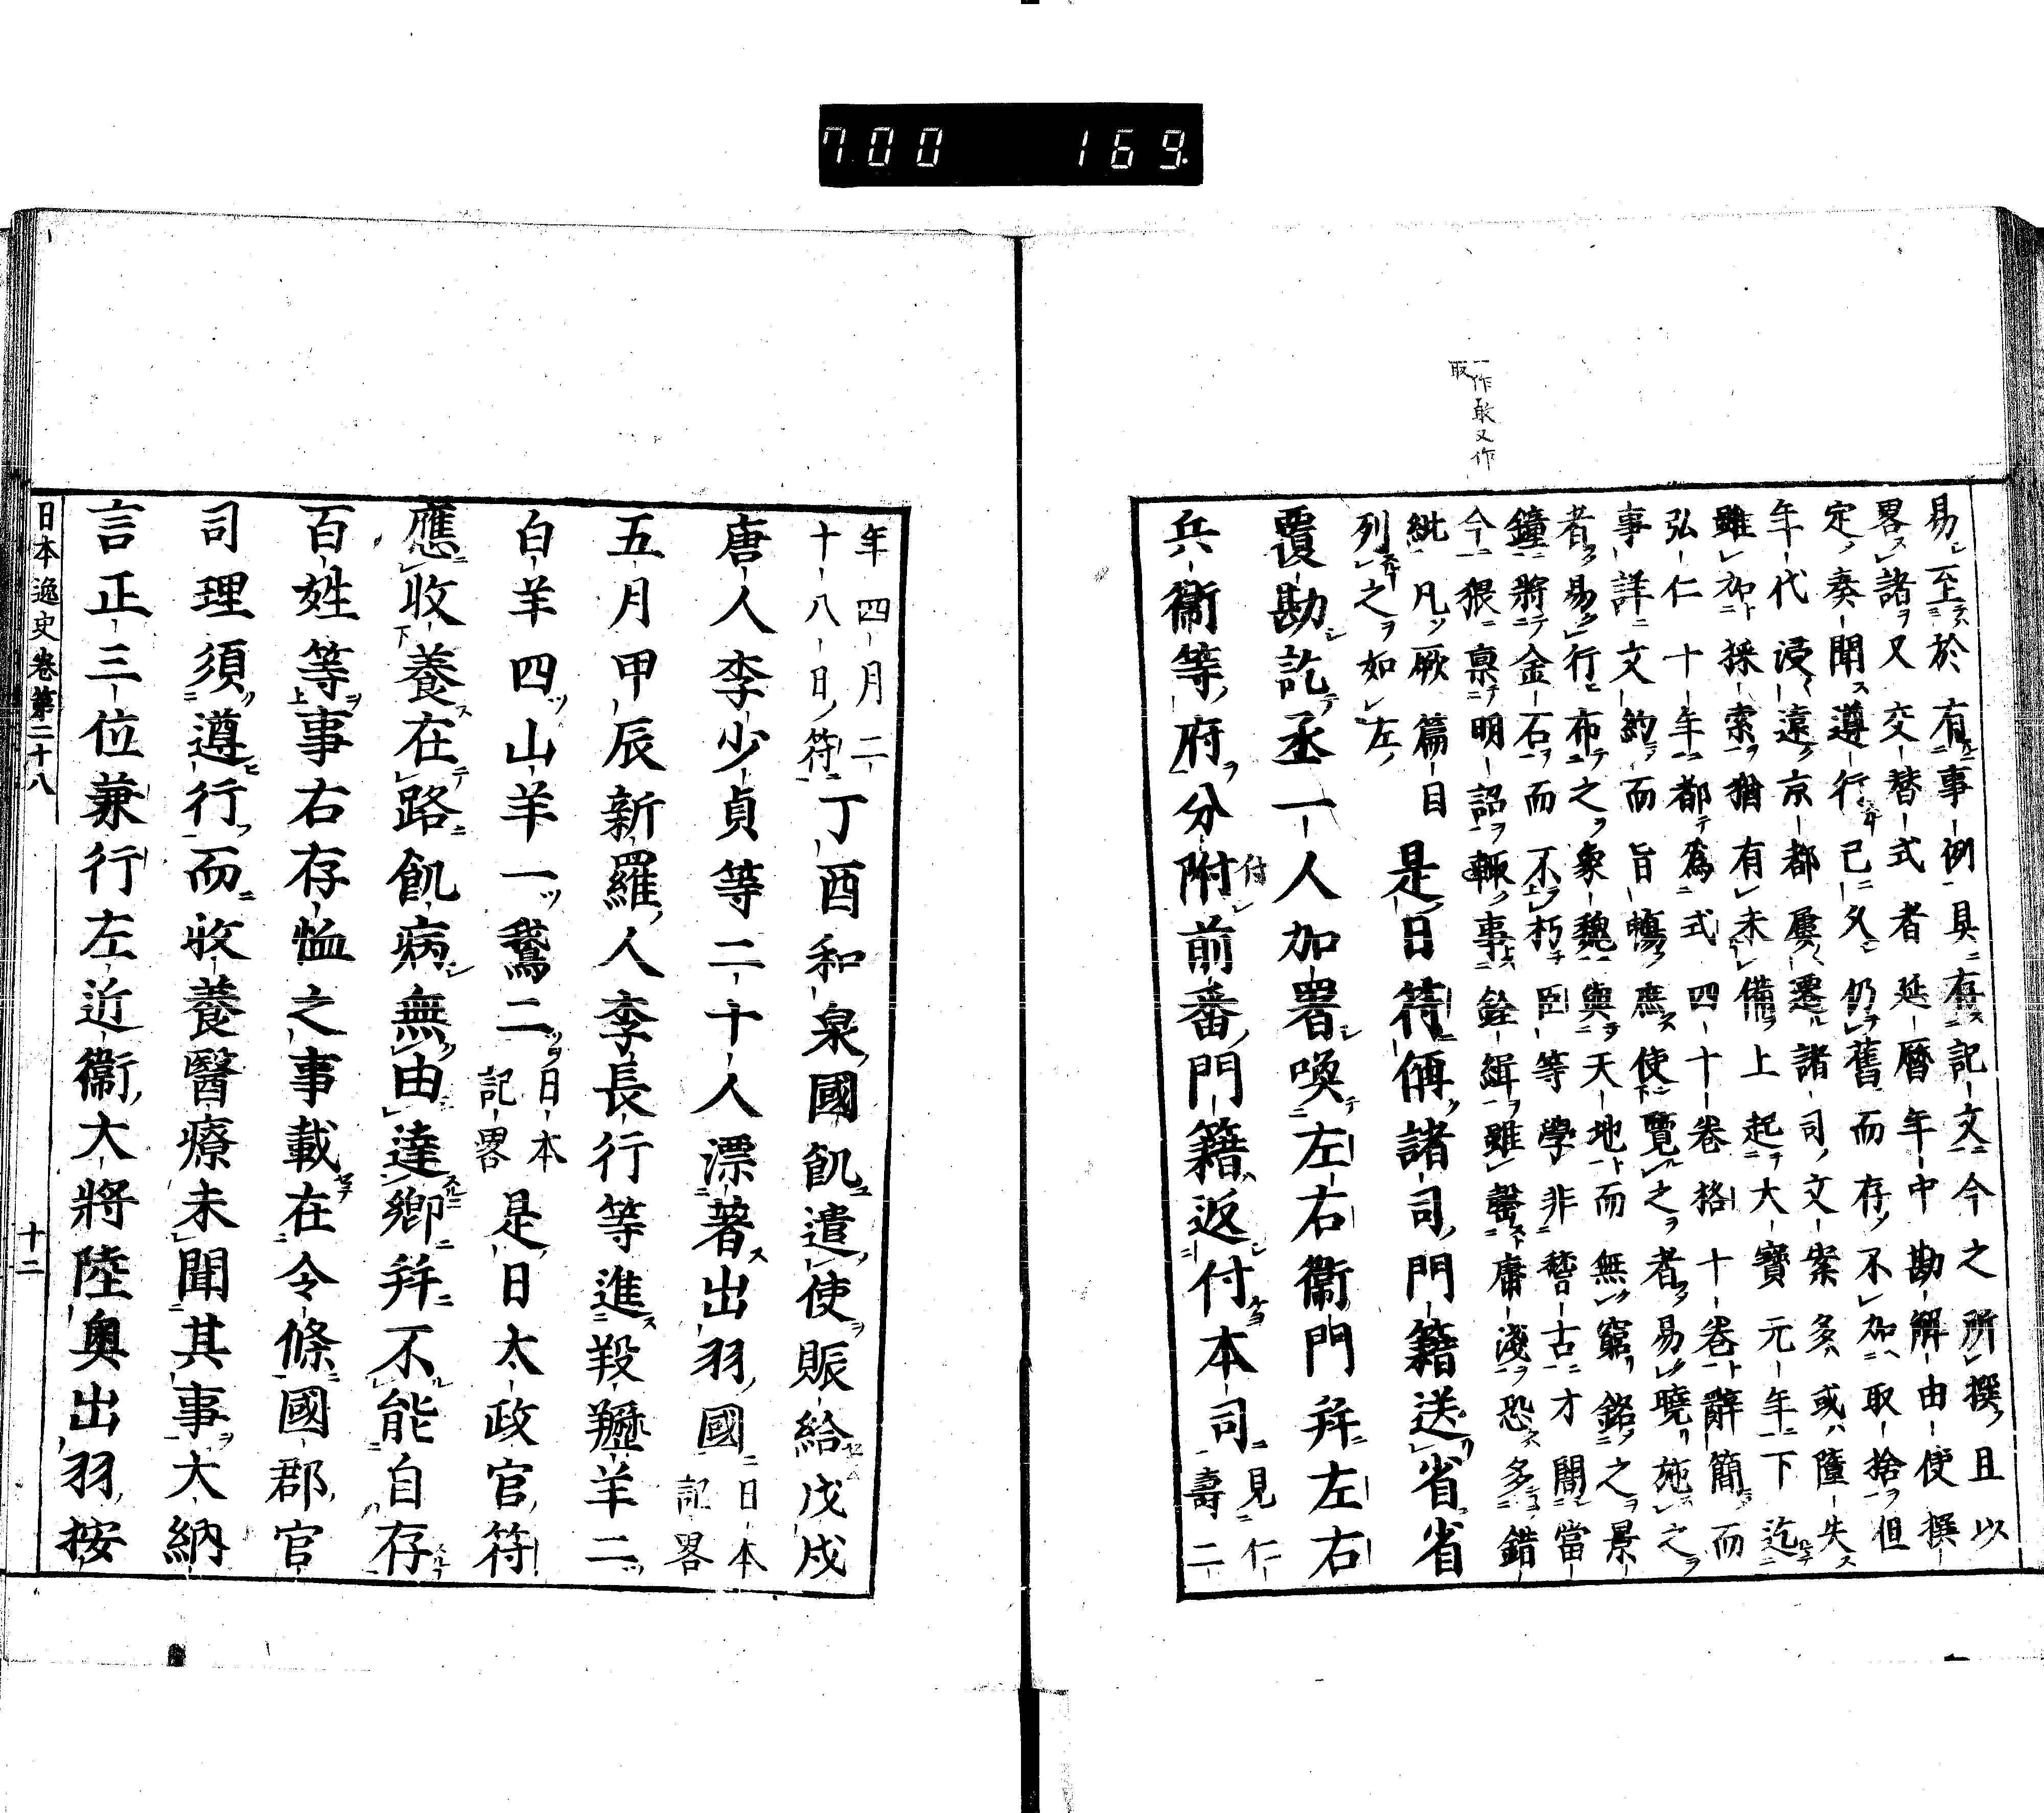 700 169
一作敢又作
取
易至於有事例具有存記文今之所撰且以
畧諸又交替式者延暦年中勘解由使撰
定奏聞遵行已久仍舊而存不加取捨但
年代浸遠京都屢遷諸司文案多或墮失
雖加採索猶有未備上起大寶元年下迄
弘仁十年都爲式四十卷格十卷辭簡而
事詳文約而旨暢庶使覽之者易曉施之
者易行布之象魏與天地而無窮銘之景
鐘將金石而不朽臣等學非稽古才闇當
今猥禀明詔輙事銓緝雖罄庸淺恐多錯
紕凡厥篇目
列之如左
是日符偁諸司門籍送省省
覆勘訖丞一人加署喚左右衞門并左右
兵衞等府分附前番門籍返付本司
付
見仁
壽二
年四月二
十八日符
丁酉和泉國飢遣使賑給戊戌
唐人李少貞等二十人漂著出羽國
日本
記畧
五月甲辰新羅人李長行等進羖䍽羊二
白羊四山羊一鵞二
日本
記畧
是日太政官符
應收養在路飢病無由達鄉并不能自存
百姓等事右存恤之事載在令條國郡官
司理須遵行而收養醫療未聞其事大納
言正三位兼行左近衞大將陸奥出羽按
日本逸史卷第二十八
十二